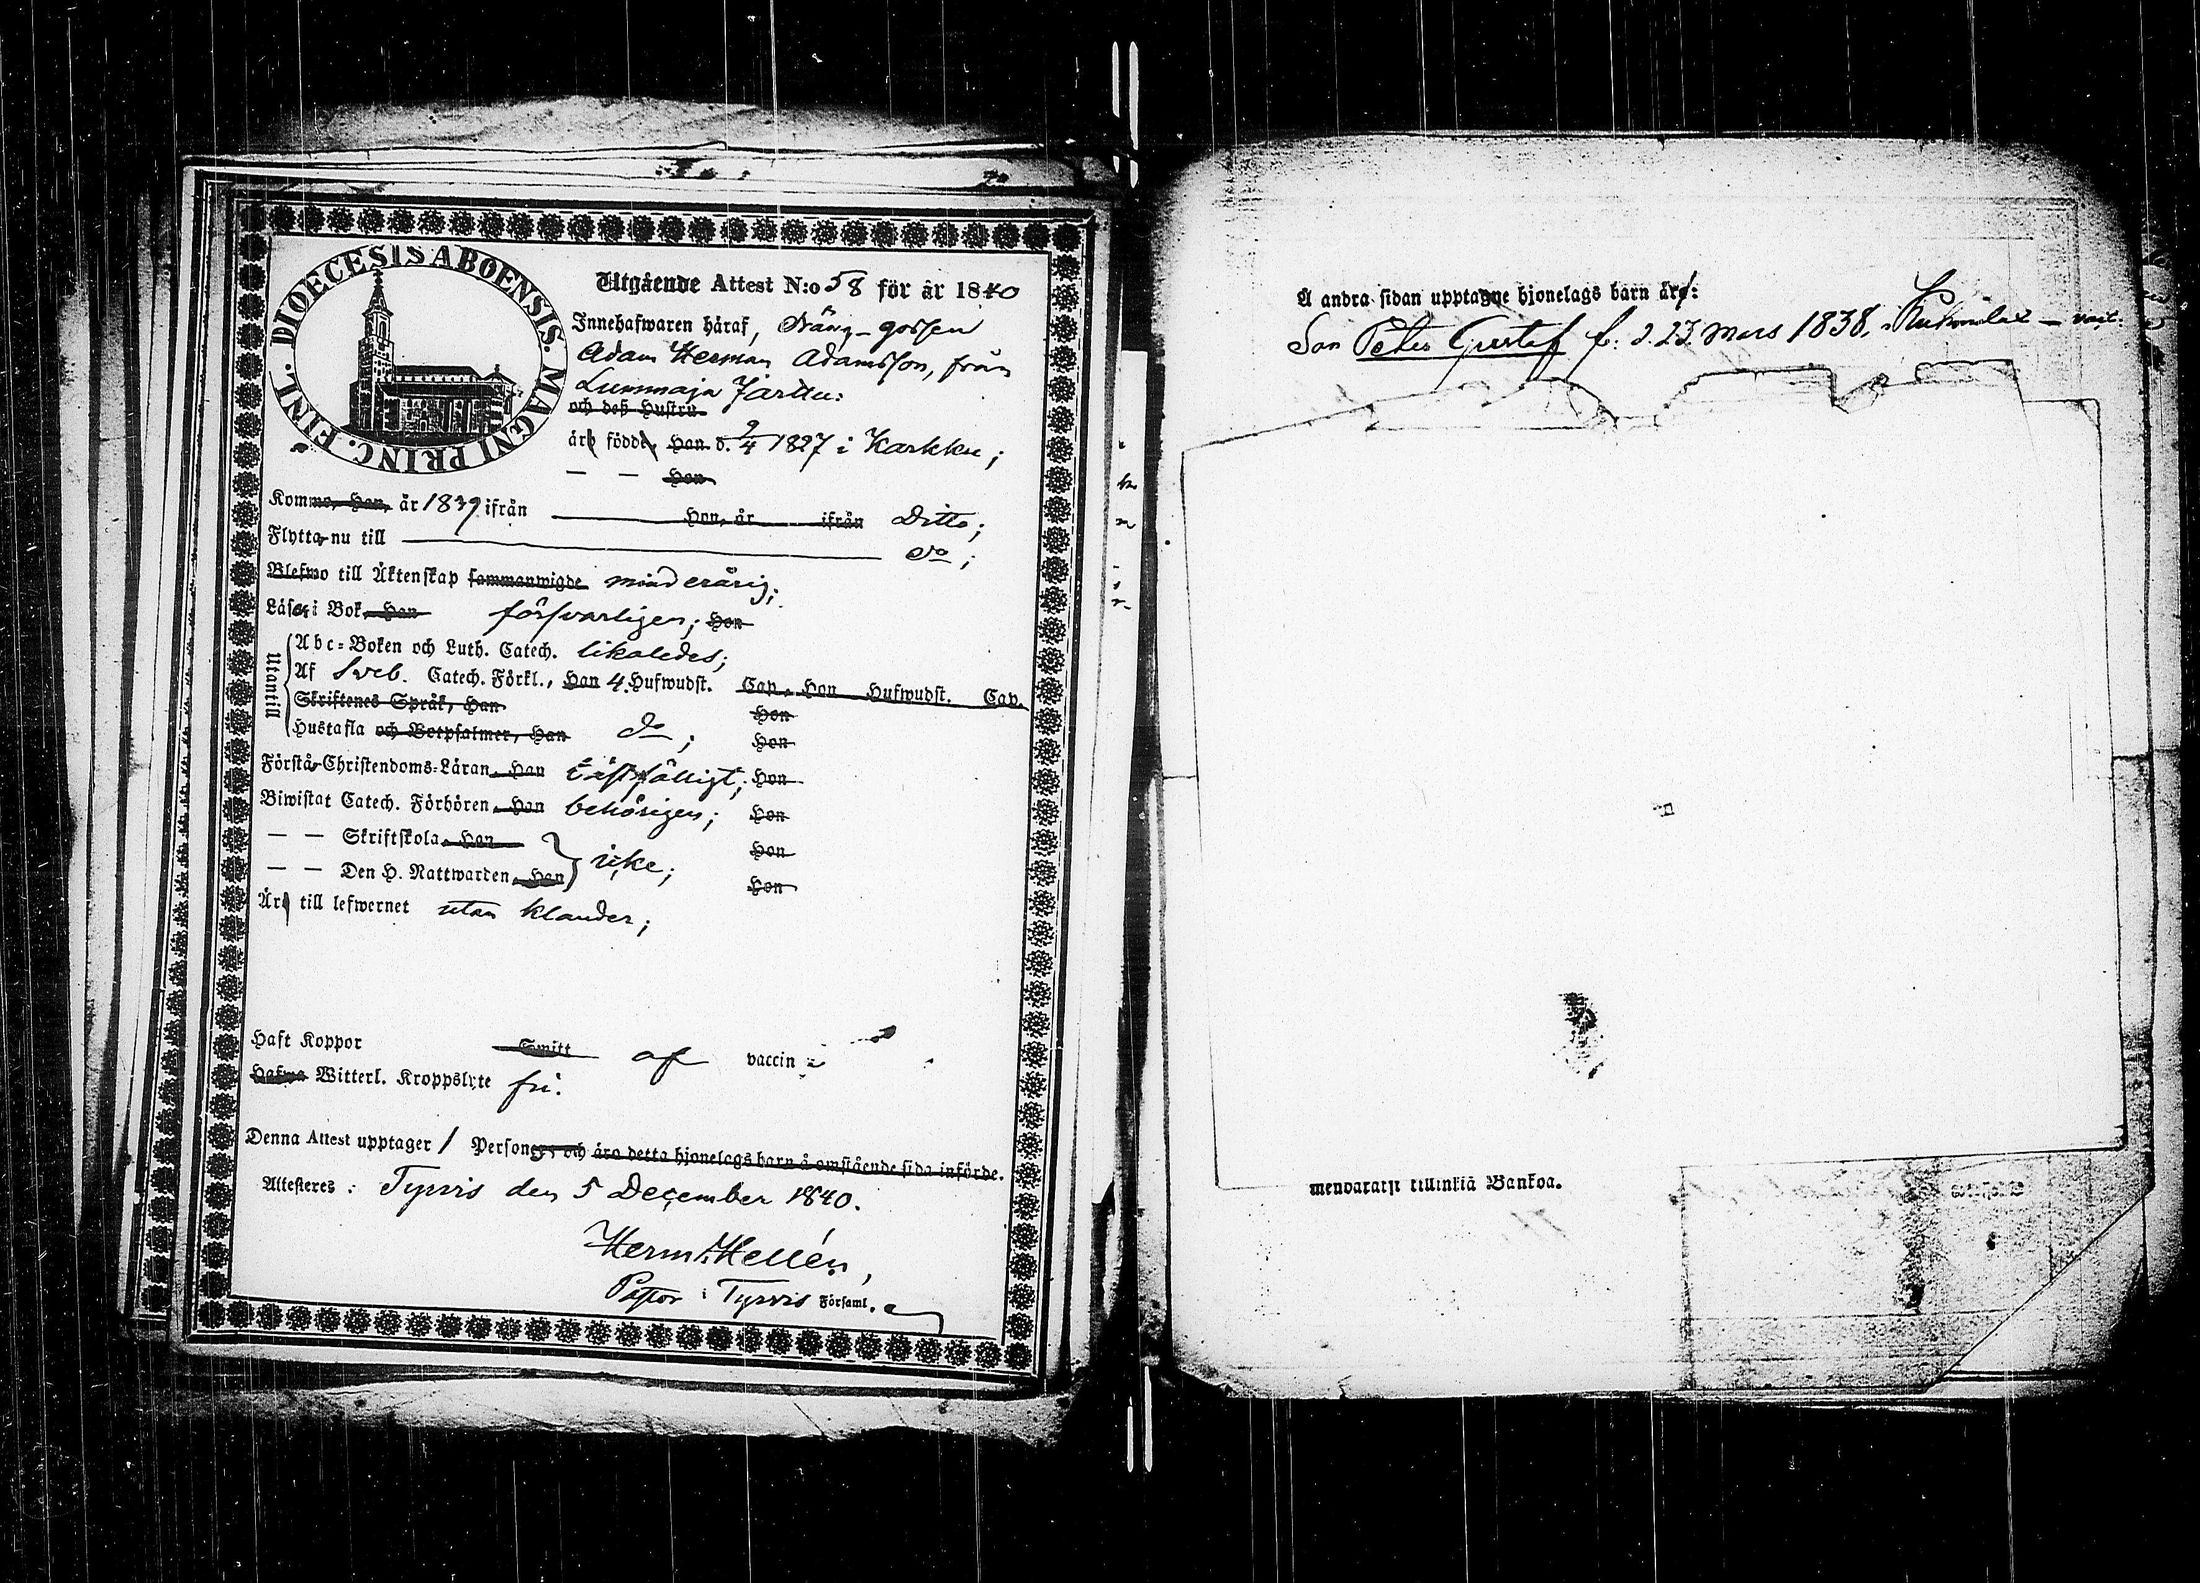 DIOECESIS ABOENSIS. MAGNI PRINC. FINL.
Utgående Attest N:o 58 för år 1840
Innehafwaren häraf, Dräng-gossen
Adam Herman Adamsson, från
Lummaja Jarttu:
och deß Hustru
äro födde, Han d. 9/4 1827 i Karkku;
— — Hon
Kommo, Han, år 1839 ifrån Hon, år ifrån Ditto;
Flytta nu till do;
Blefwo till Äktenskap sammanwigde minderårig;
Läser i Bok, Han försvarligen; Hon
Utantill
Abc-Boken och Luth. Catech. likaledes;
Af Sveb. Catech. Förkl., Han 4. Hufwudst. Cap., Hon Hufwudst. Cap.
Skriftenes Språk, Han Hon
Hustafla och Botpsalmer, Han do; Hon
Förstå Christendoms-Läran, Han Hon
Biwistat Catech. Förhören, Han behörigen; Hon
— — Skriftskola, Han Hon
— — Den H. Nattwarden, Han icke; Hon
Äro till lefwernet utan klander;
Haft Koppor Smitt af vaccin
Hafwa Witterl. Kroppslyte fri.
Denna Attest upptager 1 Personer och äro detta hjonelags barn å omstående sida införde.
Attesteres: Tyrvis den 5 December 1840.
Herm. Hellén,
Pastor i Tyrvis Församl.
Å andra sidan upptagne hjonelags barn äro:
Son Peter Gustaf f. d. 23 Mars 1838, i
mendaratji tillinkiä Bankoa.